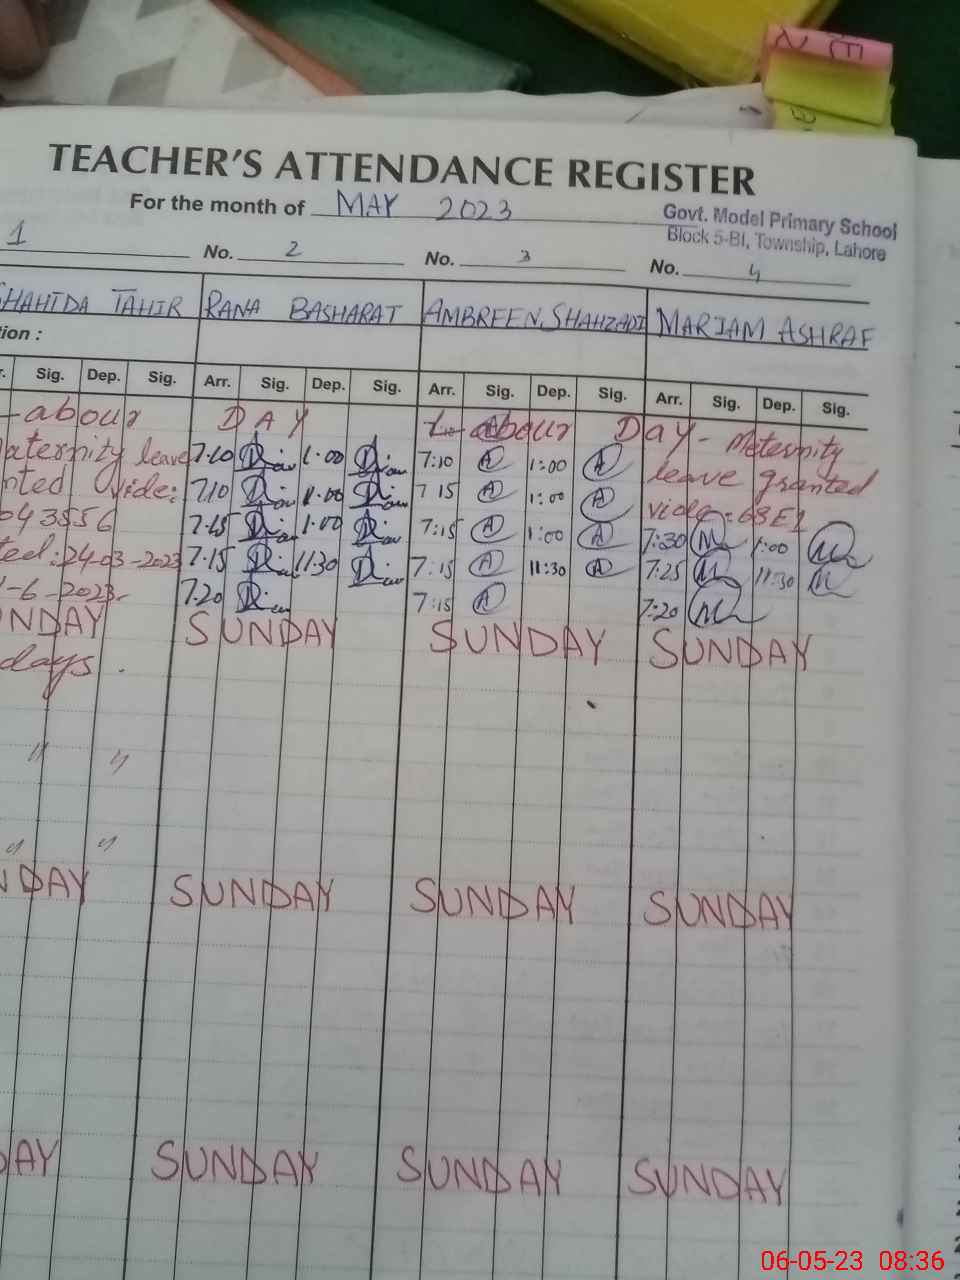 TEACHER'S ATTENDANCE REGISTER
For the month of MAY 2023
Govt. Model Primary School
Block 5-BI, Township, Lahore
1 No. 2 No. 3 No. 4
SHAHIDA TAHIR RANA BASHARAT AMBREEN SHAHZADI MARIAM ASHRAF
tion :
r. Sig. Dep. Sig. Arr. Sig. Dep. Sig. Arr. Sig. Dep. Sig. Arr. Sig. Dep. Sig.
Labour DAY Labour Day - Meternity
aternity leave 7:10 1:00 7:10 1:00 leave granted
nted vide: 7:10 1:00 7:15 1:00 vide - 68E1
043556 7:15 1:00 7:15 1:00 7:30 1:00
ted: 24-03-2023 7:15 11:30 7:15 11:30 7:25 11:30
-6-2023- 7:20 7:15 7:20
NDAY SUNDAY SUNDAY SUNDAY
days.
NDAY SUNDAY SUNDAY SUNDAY
DAY SUNDAY SUNDAY SUNDAY
06-05-23 08:36